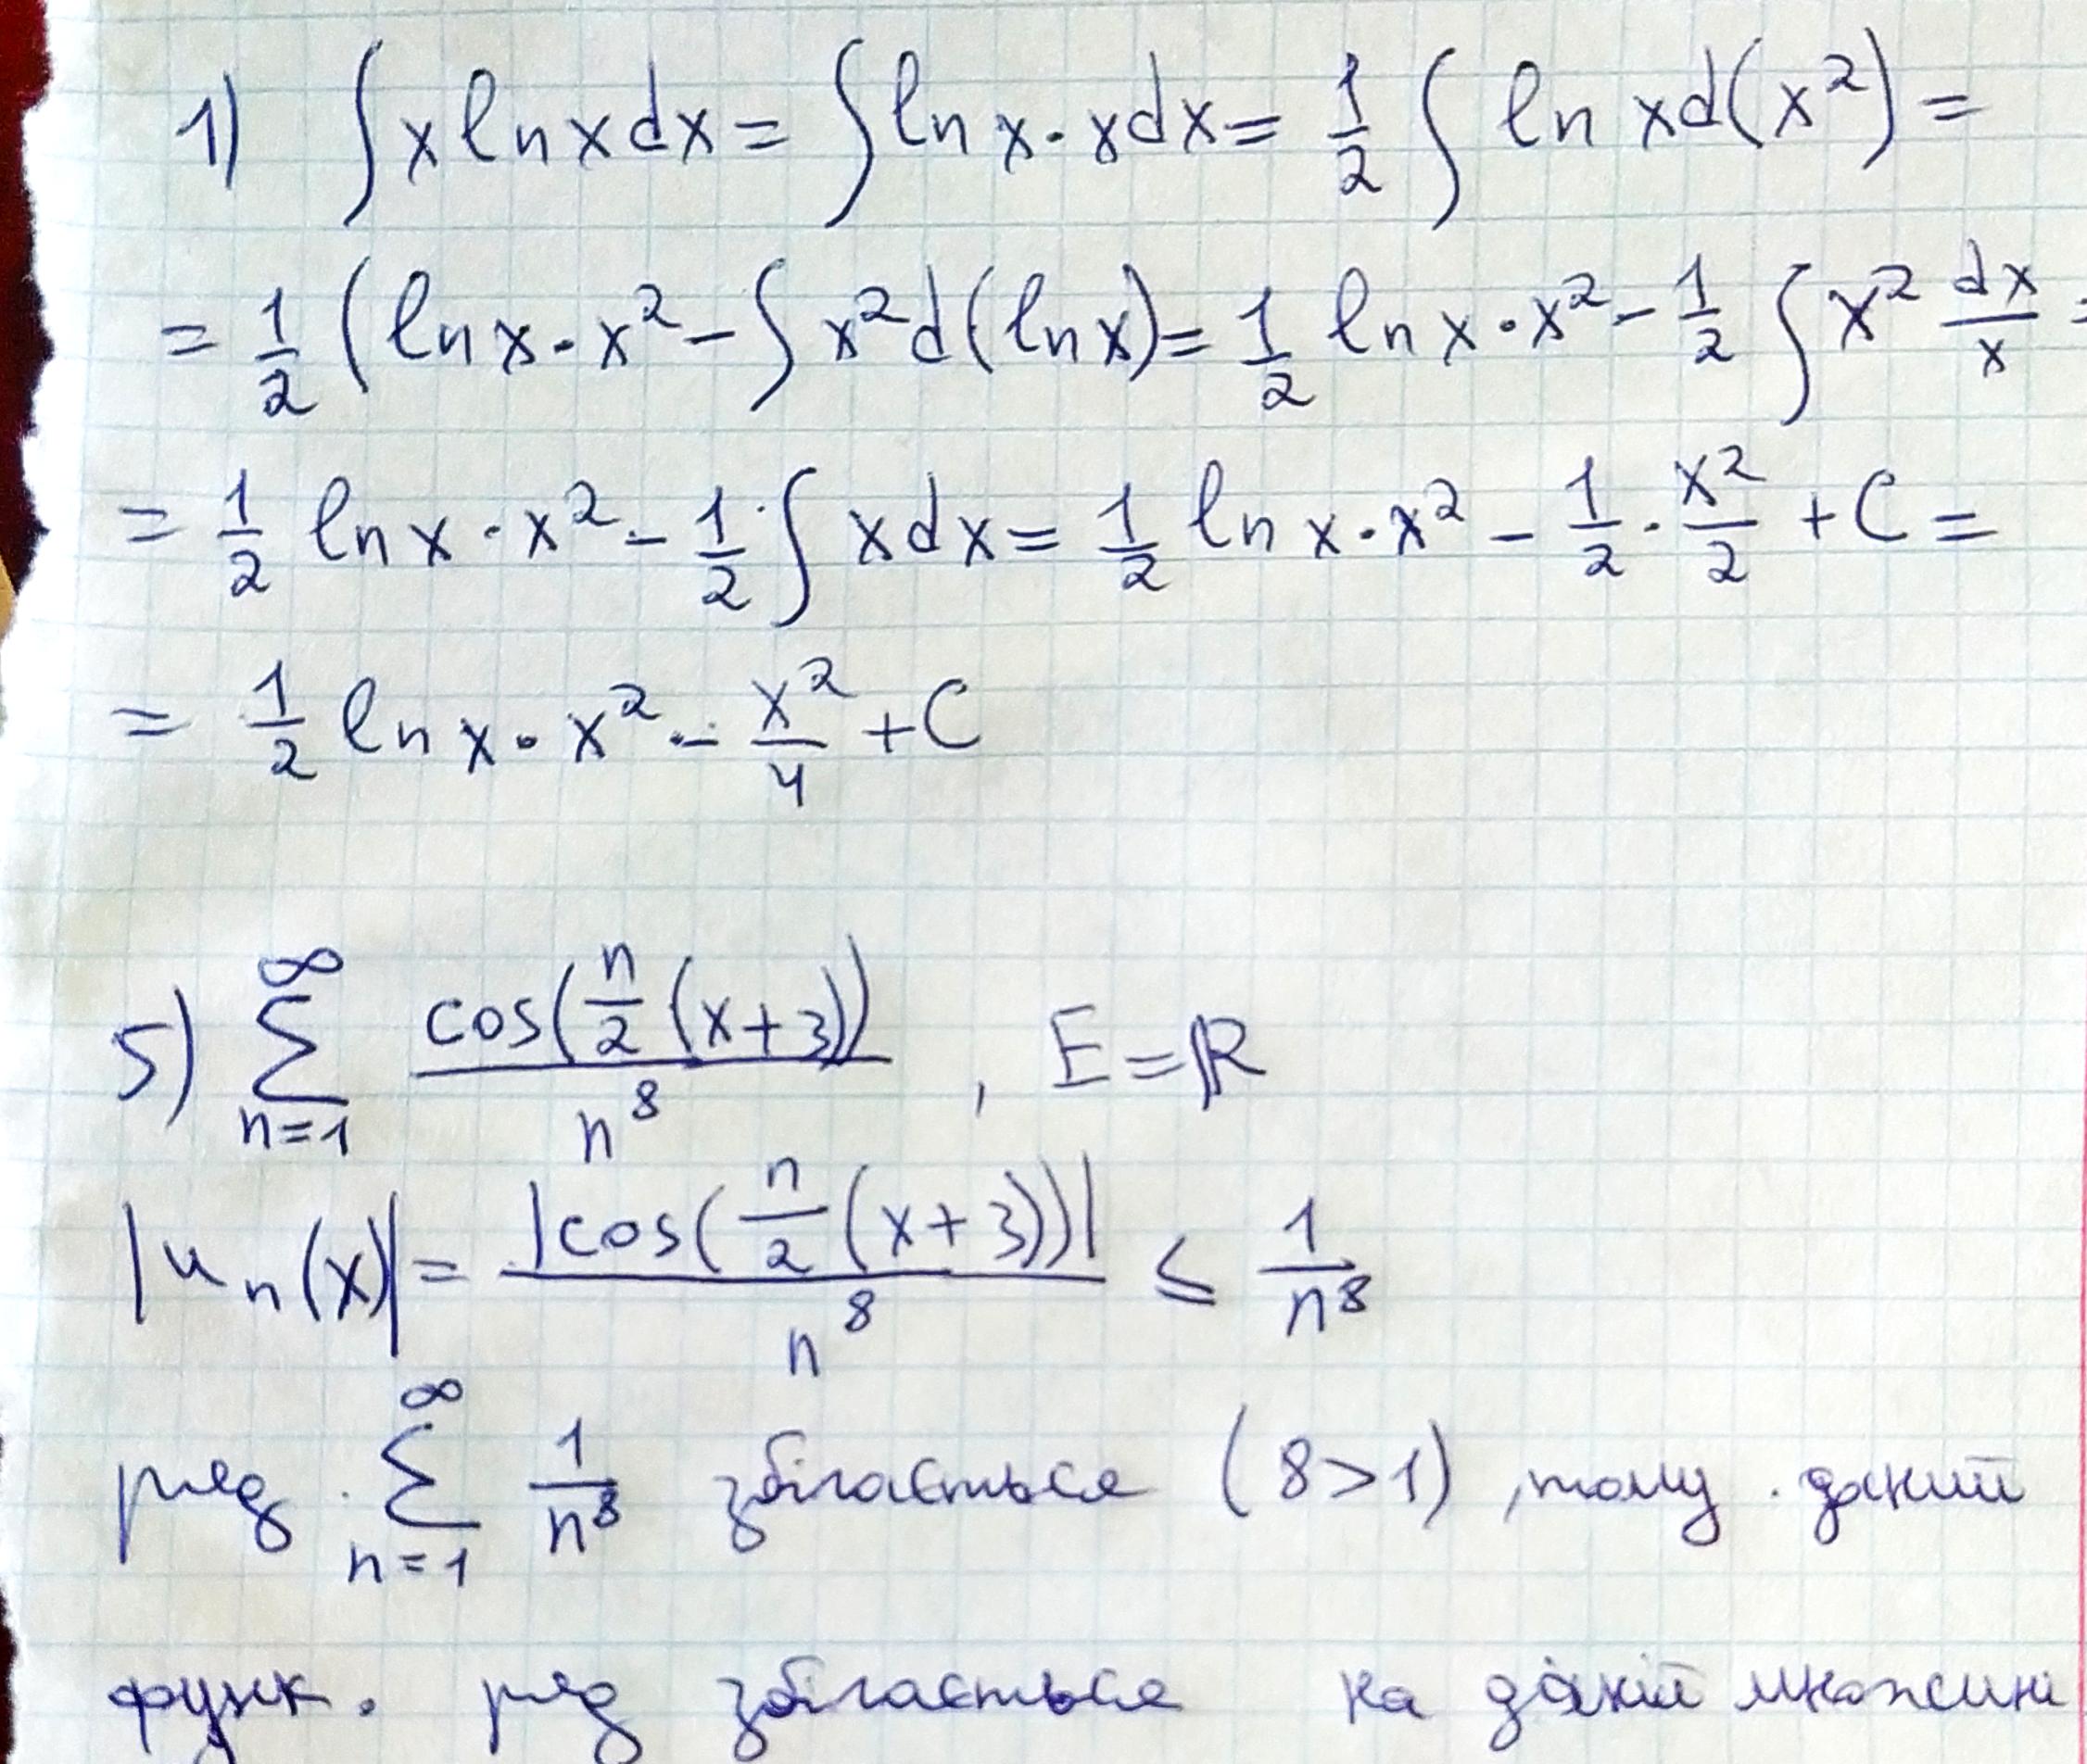 1) ∫ x ln x dx = ∫ ln x · x dx = 1/2 ∫ ln x d(x²) =
= 1/2 (ln x · x² - ∫ x² d(ln x) = 1/2 ln x · x² - 1/2 ∫ x² dx/x =
= 1/2 ln x · x² - 1/2 ∫ x dx = 1/2 ln x · x² - 1/2 · x²/2 + C =
= 1/2 ln x · x² - x²/4 + C
5) ∑_{n=1}^{∞} cos(n/2 (x+3))/n⁸ , E = ℝ
|uₙ(x)| = |cos(n/2 (x+3))|/n⁸ ≤ 1/n⁸
ряд ∑_{n=1}^{∞} 1/n⁸ збігається (8>1), тому даний
функ. ряд збігається на даній множині